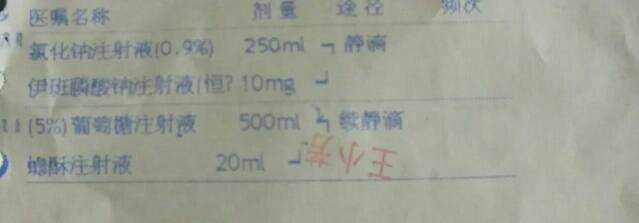 医嘱名称 剂量 途径 频次
氯化钠注射液(0.9%) 250ml ┐ 静滴
伊班膦酸钠注射液(恒? 10mg ┘
(5%)葡萄糖注射液 500ml ┐ 续静滴
蟾酥注射液 20ml ┘
王小芳